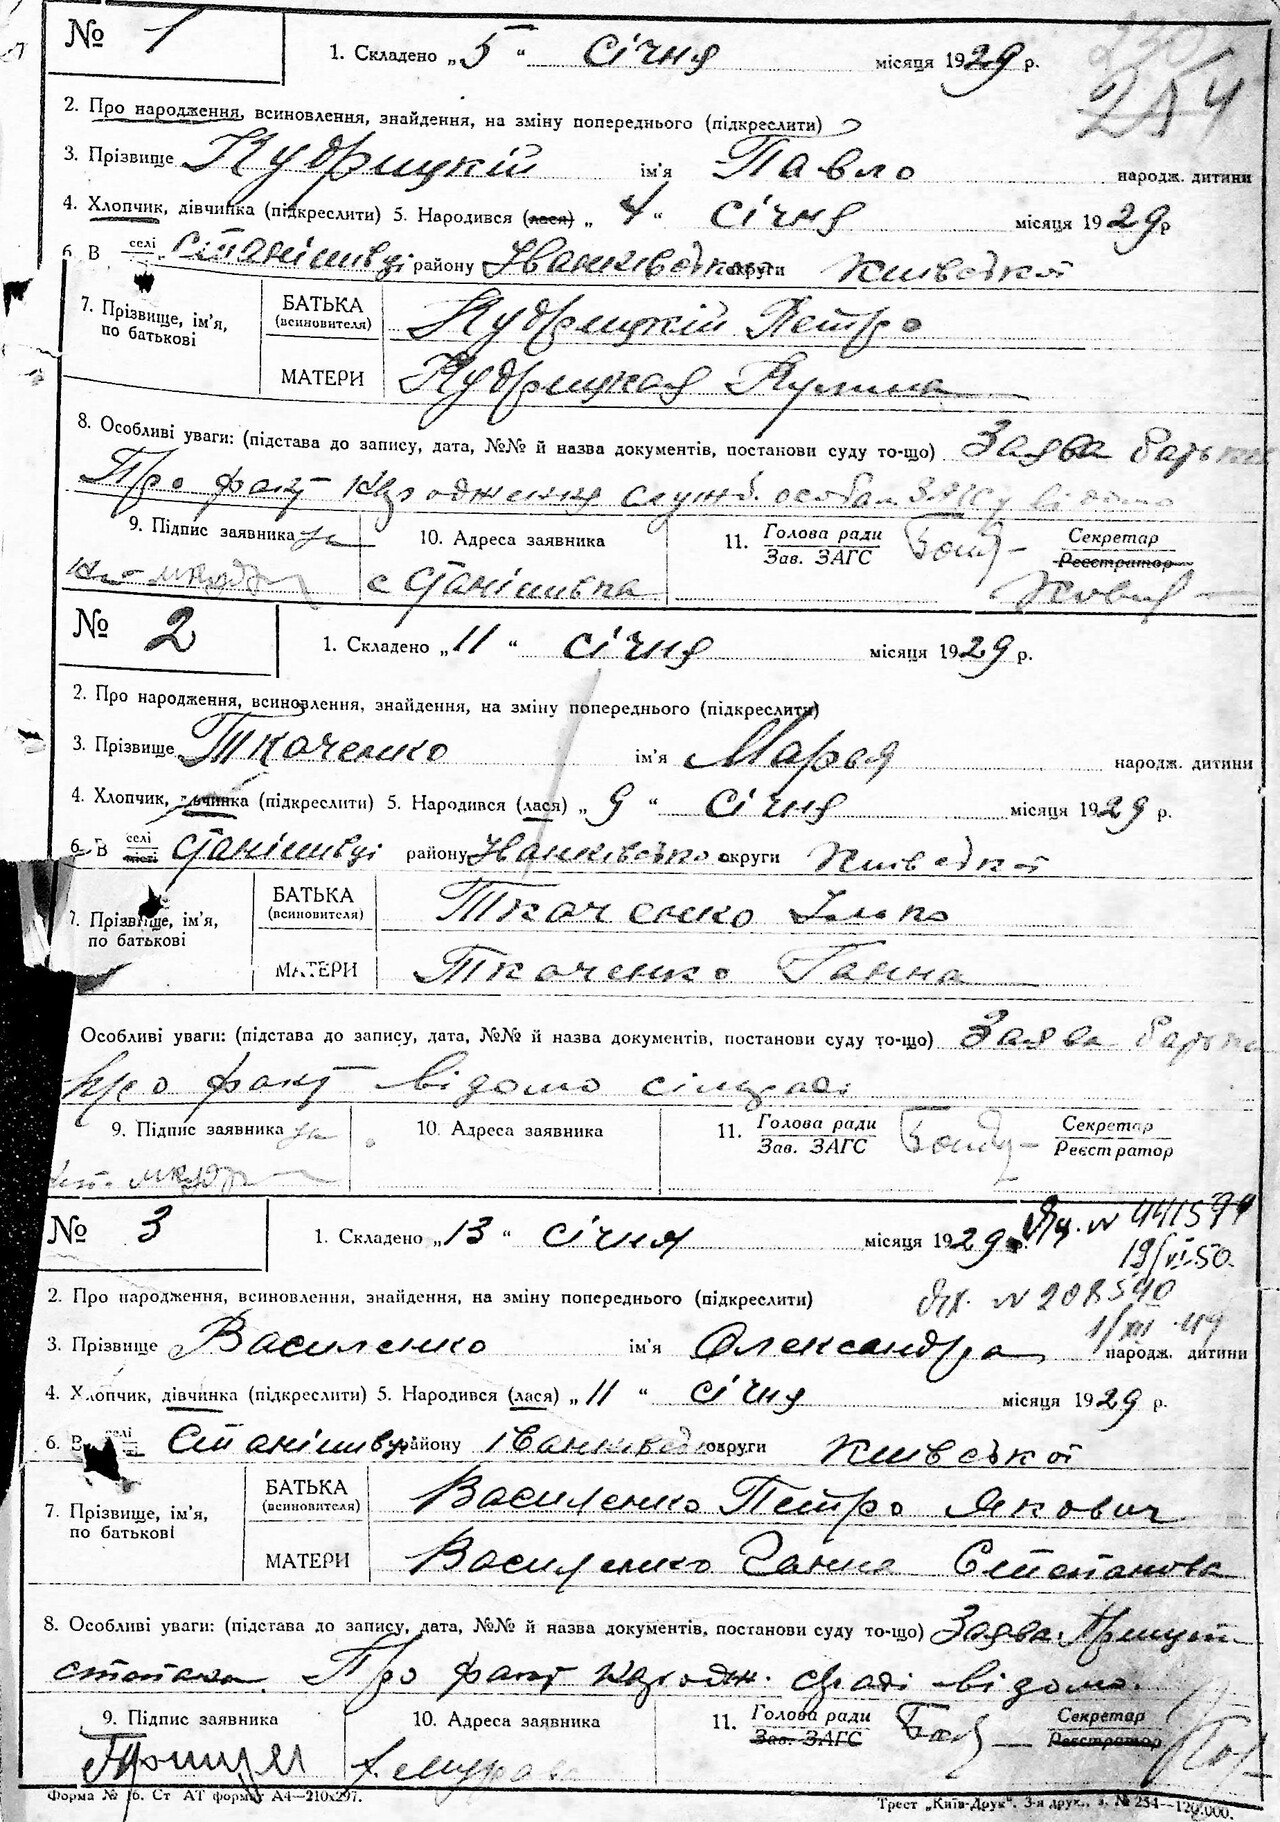 № 1
1. Складено „5“ січня місяця 1929 р.
2. Про народження, всиновлення, знайдення, на зміну попереднього (підкреслити)
3. Прізвище Кудрицкій ім'я Павло народж. дитини
4. Хлопчик, дівчинка (підкреслити) 5. Народився (лася) „4“ січня місяця 1929 р
6 В селі Станішивці району Іванківської округи Київської
7. Прізвище, ім'я, по батькові
БАТЬКА (всиновителя) Кудрицкій Петро
МАТЕРИ Кудрицкая Кулина
8. Особливі уваги: (підстава до запису, дата, №№ й назва документів, постанови суду то-що) Заява батька
Про факт народження служб. особам ЗАГСу відомо
9. Підпис заявника 10. Адреса заявника 11. Голова ради Зав. ЗАГС Секретар Реєстратор
с Станішивка
№ 2
1. Складено „11“ січня місяця 1929 р.
2. Про народження, всиновлення, знайдення, на зміну попереднього (підкреслити)
3. Прізвище Ткаченко ім'я Марья народж. дитини
4. Хлопчик, дівчинка (підкреслити) 5. Народився (лася) „9“ січня місяця 1929 р.
6. В селі Станішивці району Іванківсько округи Київської
7. Прізвище, ім'я, по батькові
БАТЬКА (всиновителя) Ткаченко Ілько
МАТЕРИ Ткаченко Ганна
Особливі уваги: (підстава до запису, дата, №№ й назва документів, постанови суду то-що) Заява батька
про факт відомо сільраді
9. Підпис заявника 10. Адреса заявника 11. Голова ради Зав. ЗАГС Секретар Реєстратор
№ 3
1. Складено „13“ січня місяця 1929
19/VI.50.
2. Про народження, всиновлення, знайдення, на зміну попереднього (підкреслити)
№ 208590
3. Прізвище Василенко ім'я Олександра народж. дитини
4. Хлопчик, дівчинка (підкреслити) 5. Народився (лася) „11“ січня місяця 1929 р.
6. В селі Станішивці району Іванківської округи Київської
7. Прізвище, ім'я, по батькові
БАТЬКА (всиновителя) Василенко Петро Якович
МАТЕРИ Василенко Ганна Степановa
8. Особливі уваги: (підстава до запису, дата, №№ й назва документів, постанови суду то-що) Заява
Степана. Про факт народж. с/раді відомо.
9. Підпис заявника 10. Адреса заявника 11. Голова ради Зав. ЗАГС Секретар Реєстратор
Форма № 16. Ст АТ формат А4—210x297.
Трест „Київ-Друк“. 3-я друк., з. № 254—120.000.